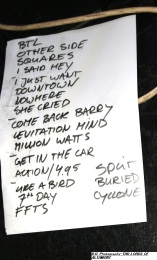 BTL
OTHER SIDE
SQUARES
I SAID HEY
I JUST WANT
DOWNTOWN
NOWHERE
SHE CRIED
-COME BACK BARRY
LEVITATION MIND
MILLION WATTS
-GET IN THE CAR
ACTION/4.95
-LIKE A BIRD
7TH DAY
FFTS
SPLIT
BURIED
CYCLONE